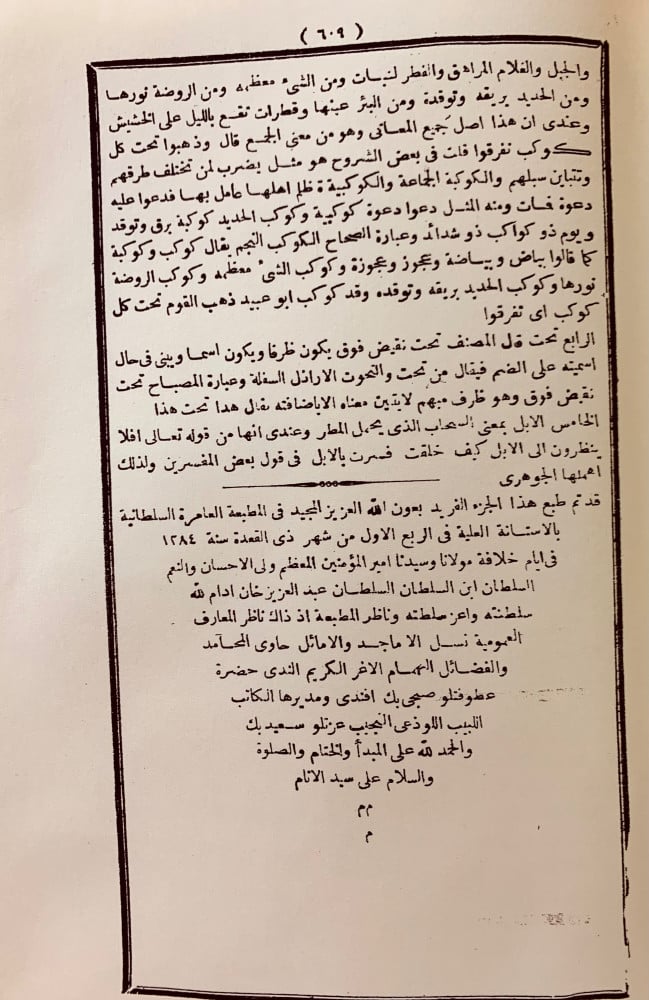 ( ٦٠٩ )
والجبل والغلام المراهق والفطر لنبات ومن الشئ معظمه ومن الروضة نورها
ومن الحديد بريقه وتوقده ومن البئر عينها وقطرات تقع بالليل على الحشيش
وعندى ان هذا اصل جميع المعانى وهو من معنى الجمع قال وذهبوا تحت كل
كوكب تفرقوا قلت فى بعض الشروح هو مثل يضرب لمن تختلف طرقهم
وتتباين سبلهم والكوكبة الجماعة والكوكبية ة ظلم اهلها عامل بها فدعوا عليه
دعوة فمات ومنه المثل دعوا دعوة كوكبية وكوكب الحديد كوكبة برق وتوقد
ويوم ذو كواكب ذو شدائد وعبارة الصحاح الكوكب النجم يقال كوكب وكوكبة
كما قالوا بياض وبياضة وعجوز وعجوزة وكوكب الشئ معظمه وكوكب الروضة
نورها وكوكب الحديد بريقه وتوقده وقد كوكب ابو عبيد ذهب القوم تحت كل
كوكب اى تفرقوا
الرابع تحت قال المصنف تحت نقيض فوق يكون ظرفا ويكون اسما ويبنى فى حال
اسميته على الضم فيقال من تحت والتحوت الاراذل السفلة وعبارة المصباح تحت
نقيض فوق وهو ظرف مبهم لايتبين معناه الاباضافته يقال هذا تحت هذا
الخامس الابل بمعنى السحاب الذى يحمل المطر وعندى انها من قوله تعالى افلا
ينظرون الى الابل كيف خلقت فسرت بالابل فى قول بعض المفسرين ولذلك
اهملها الجوهرى
قد تم طبع هذا الجزء الفريد بعون الله العزيز المجيد فى المطبعة العامرة السلطانية
بالاستانة العلية فى الربع الاول من شهر ذى القعدة سنة ١٢٨٤
فى ايام خلافة مولانا وسيدنا امير المؤمنين المعظم ولى الاحسان والنعم
السلطان ابن السلطان السلطان عبد العزيز خان ادام لله
سلطنته واعز سلطته وناظر المطبعة اذ ذاك ناظر المعارف
العمومية نسل الاماجد والاماثل حاوى المحامد
والفضائل الهمام الاغر الكريم الندى حضرة
عطوفتلو صبحى بك افندى ومديرها الكاتب
اللبيب اللوذعى النجيب عزتلو سعيد بك
والحمد لله على المبدأ والختام والصلوة
والسلام على سيد الانام
م م
م